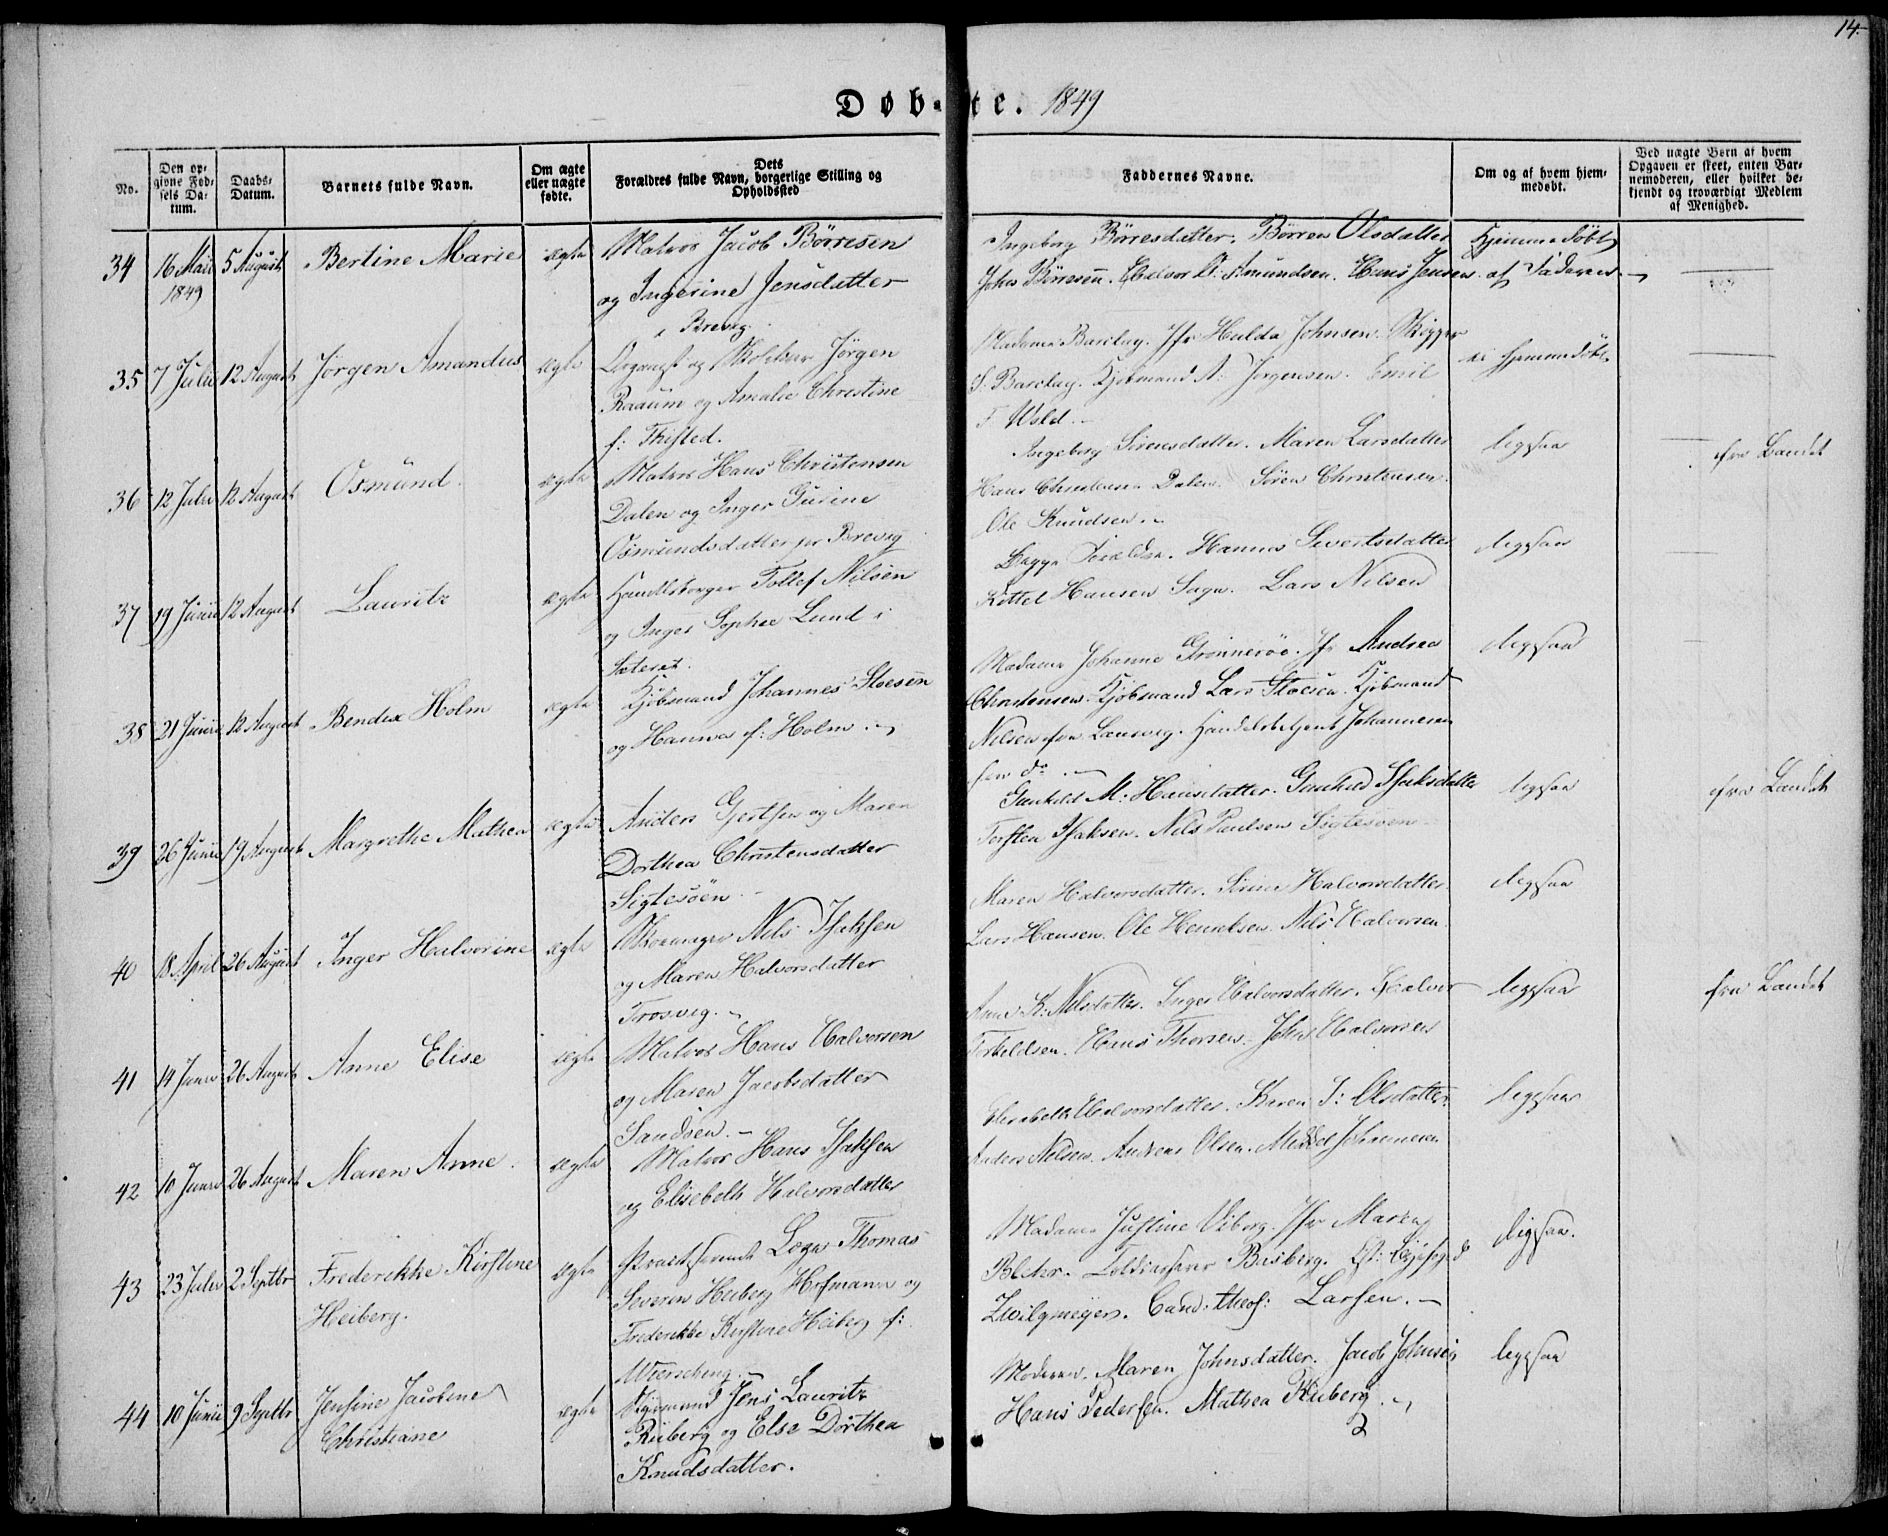 14.
Døb- te. 1849
No.
Den op-
givne Fød-
sels Da-
tum.
Daabs-
Datum.
Barnets fulde Navn.
Om ægte
eller uægte
fødte.
Dets
Forældres fulde Navn, borgerlige Stilling og
Opholdssted
Faddernes Navne.
Om og af hvem hjem-
medøbt.
Ved uægte Børn af hvem
Opgaven er skeet, enten Bar-
nemoderen, eller hvilket be-
kjendt og troværdigt Medlem
af Menighed.
34 16 Mai 5 August Bertine Marie ægte Matros Jacob Börresen
1849
og Ingerine Jensdatter
i Brevig.
Ingeborg Börresdatter. Börren Olsdatter
John Börresen. Halvor Amundsen. Hans Jensen.
Hjemmedöbt
af Faderen
35 7 Juli 12 August Jörgen Amandus ægte Organist og Jörgen
Raaum og Amalie Christine
f: Thisted.
Madame Barclay. Jfr Hulda Johnsen. Skipper
S. Barclay. Kjöbmand A: Jörgensen. Emil
F. Wold.
ei hjemmedöbt
36 12 Juli 12 August Osmund. ægte Matros Hans Christensen
Dalen og Inger Gurine
Osmundsdatter Brevig
Ingeborg Sirensdatter. Maren Larsdatter
Hans Christensen Dalen. Sören Christensen.
Ole Knudsen.
ligesaa
fra Landet
37 19 Junii 12 August Lauritz ægte Handelsborger Tollef Nilsen
og Inger Sophie Lund i
Begge Forældre. Hannes Sivertsdatter
Kittel Hansen Sagn. Lars Nilsen
ligesaa
38 21 Junii 12 August Bendix Holm ægte Kjöbmand Johannes Stoesen
og Hanna f: Holm.
Madame Johanne Grönneröe. Jfr Andrea
Christensen. Kjöbmand Lars Stoesen. Kjöbmand
Nilsen fra Laurvig. Handelsbetjent Johannesen
do.
ligesaa
39 26 Junii 19 August Margrethe Mathea ægte Anders Gjertsen og Maren
Dorthea Christensdatter
Sigtesöen
Gunhild M. Hansdatter. Gunhild Isaksdatter
Torsten Isaksen. Nils Paulsen Sigtesöen
ligesaa
fra Landet
40 18 April 26 August Inger Halvorine ægte Nils Isaksen
og Maren Halvorsdatter
Trosvig.
Maren Halvorsdatter. Sirine Halvorsdatter.
Lars Hansen. Ole Henriksen. Nils Halvorsen.
ligesaa
41 14 Junii 26 August Anne Elise ægte Matros Hans Halvorsen
og Maren Jacobsdatter
Sandöen.
Anne K. Nilsdatter. Inger Halvorsdatter. Halvor
Torkeldsen. Hans Thorsen. John Halvorsen
ligesaa
fra Landet
42 10 Junii 26 August Maren Anne. ægte Matros Hans Isaksen
og Elisebeth Halvorsdatter
Elisabeth Halvorsdatter. Karen I: Olsdatter.
Anders Nilsen. Andreas Olsen. Mikkel Johannesen
ligesaa
43 23 Juli 2 Septbr Frederikke Kirstine
Heiberg.
ægte Thomas
Severin Heiberg Hofmann og
Frederikke Kirstine Heiberg f:
Wiersching.
Madame Justine Viborg. Jfr Maren
Blehr. Toldkasserer Busberg.
Zwilgmeyer. Cand: theol: Larsen.
ligesaa.
44 10 Junii 9 Septbr Jensine Jacobine
Christiane
ægte Jens Lauritz
Riiberg og Else Dorthea
Knudsdatter.
Moderen. Maren Johnsdatter. Jacob Johnsen
Hans Pedersen. Mathea Riiberg.
ligesaa